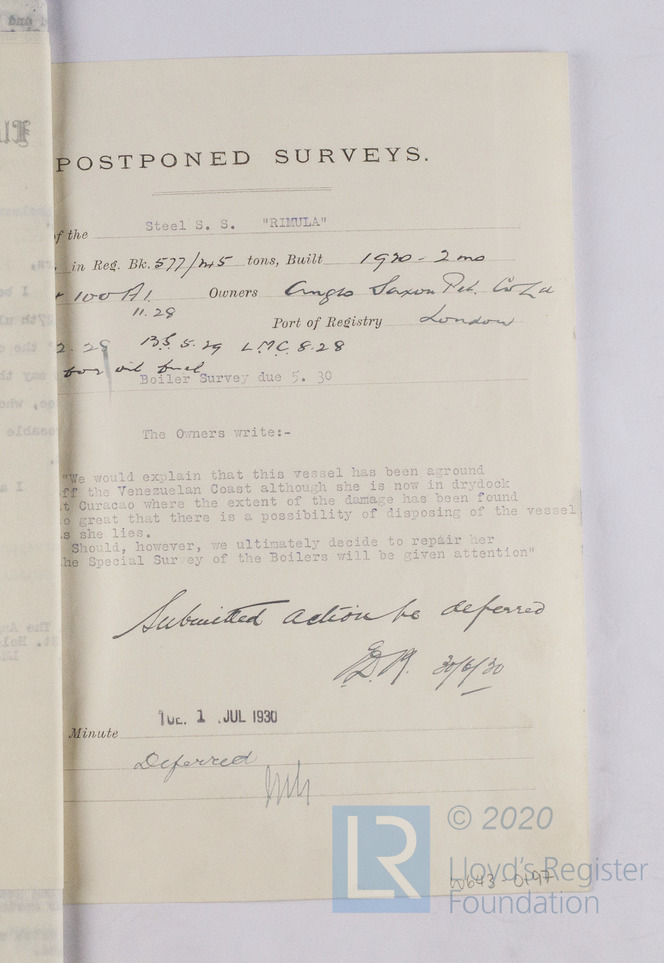 POSTPONED SURVEYS.
f the Steel S. S. "RIMULA"
in Reg. Bk. 577/ tons, Built 1920 - 2 mo
100 A1. Owners Anglo Saxon Pet. Co Ld
11.28
Port of Registry London
2. 28 B.S 5.29 L.M.C. 8.28
for oil fuel
Boiler Survey due 5. 30
The Owners write:-
"We would explain that this vessel has been aground
ff the Venezuelan Coast although she is now in drydock
t Curacao where the extent of the damage has been found
o great that there is a possibility of disposing of the vessel
s she lies.
Should, however, we ultimately decide to repair her
he Special Survey of the Boilers will be given attention"
Submitted action be deferred
30/6/30
TUE. 1 JUL 1930
Minute
Deferred
LR
© 2020
Lloyd's Register
Foundation
W643-0197